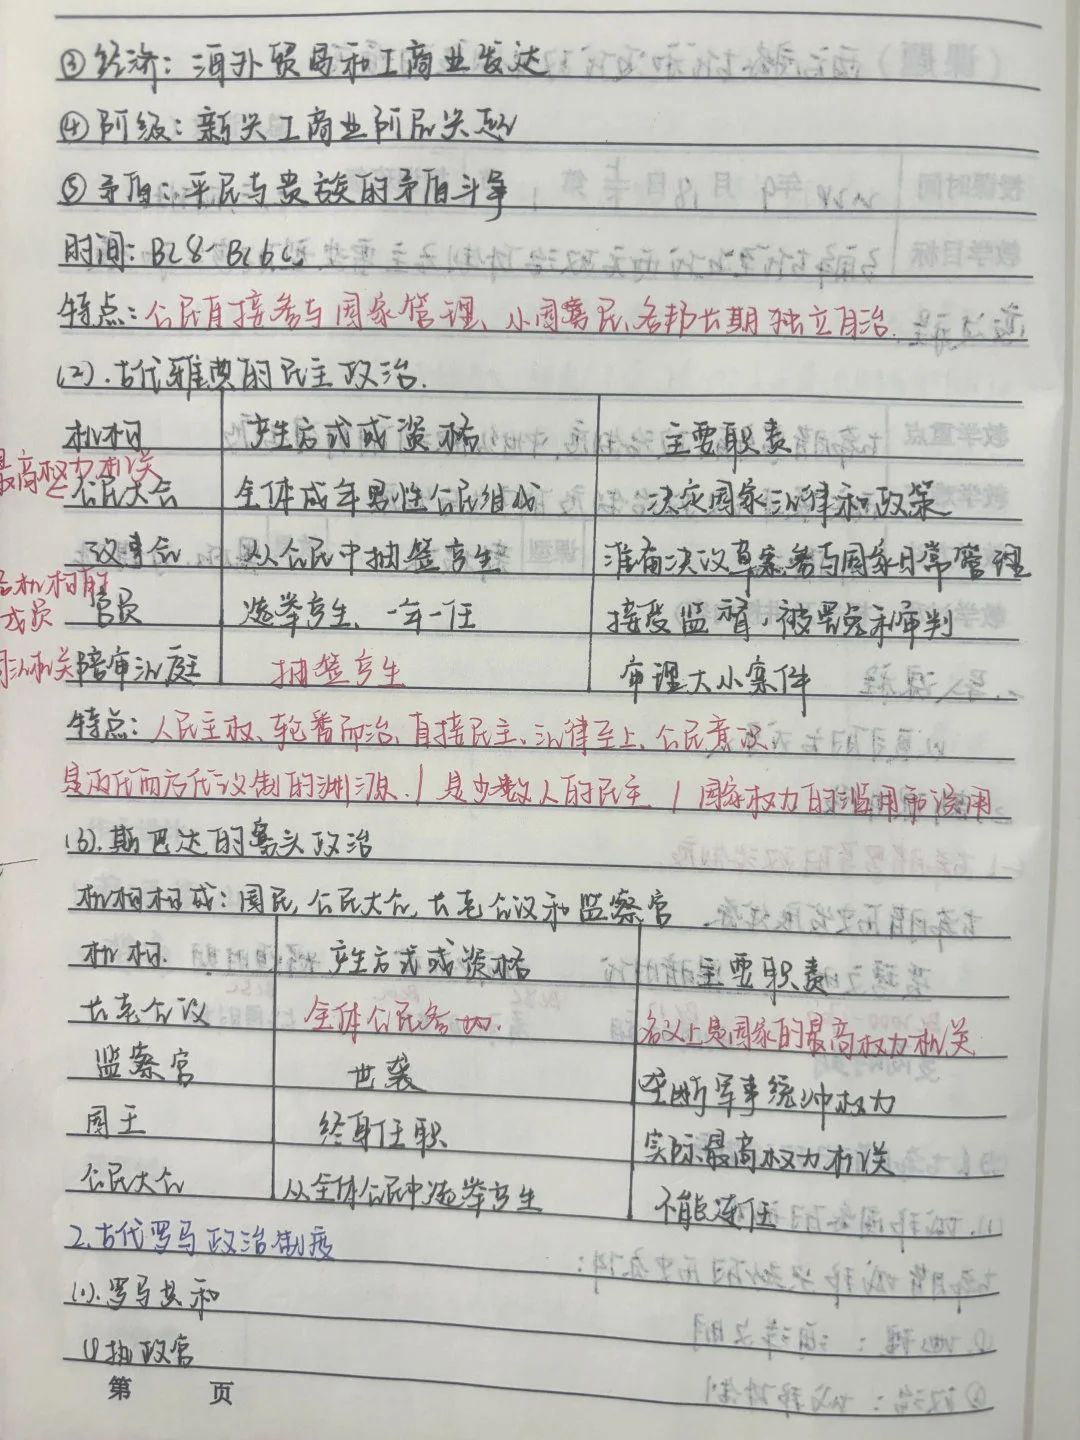 ③经济：海外贸易和工商业发达
④阶级：新兴工商业阶层关心
⑤矛盾：平民与贵族的矛盾斗争
时间：BC8-BC6
特点：公民直接参与国家管理、小国寡民、各邦长期独立自治.
(2).古代雅典的民主政治.
机构 产生方式或资格 主要职责
最高权力机关
公民大会 全体成年男性公民组成 决定国家法律和政策
议事会 从公民中抽签产生 准备决议草案,参与国家日常管理
各机构所
成员 官员 选举产生、一年一任 接受监督,被罢免和审判
司法机关 陪审法庭 抽签产生 审理大小案件
特点：人民主权、轮番而治、直接民主、法律至上、公民意识
是近代西方代议制的渊源./是少数人的民主./国家权力的滥用和误用
(3).斯巴达的寡头政治
机构构成：国民,公民大会,长老会议和监察官
机构. 产生方式或资格 主要职责
长老会议 全体公民参加. 名义上是国家的最高权力机关
监察官 世袭 垄断军事统帅权力
国王 终身任职 实际最高权力机关
公民大会 从全体公民中选举产生 不能连任
2.古代罗马政治制度
(1).罗马共和
①执政官
第 页